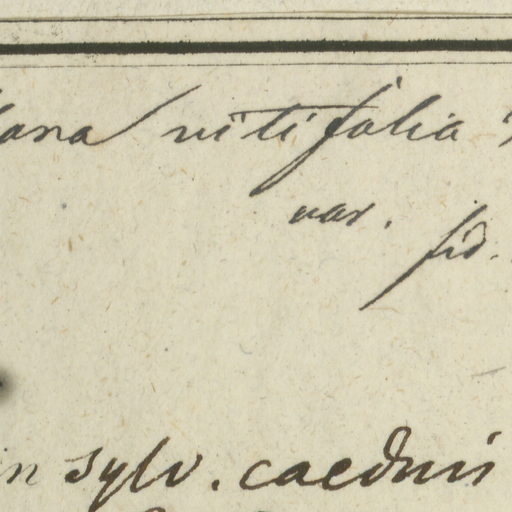 vitifolia
var.
fid.
in sylv. caeduis